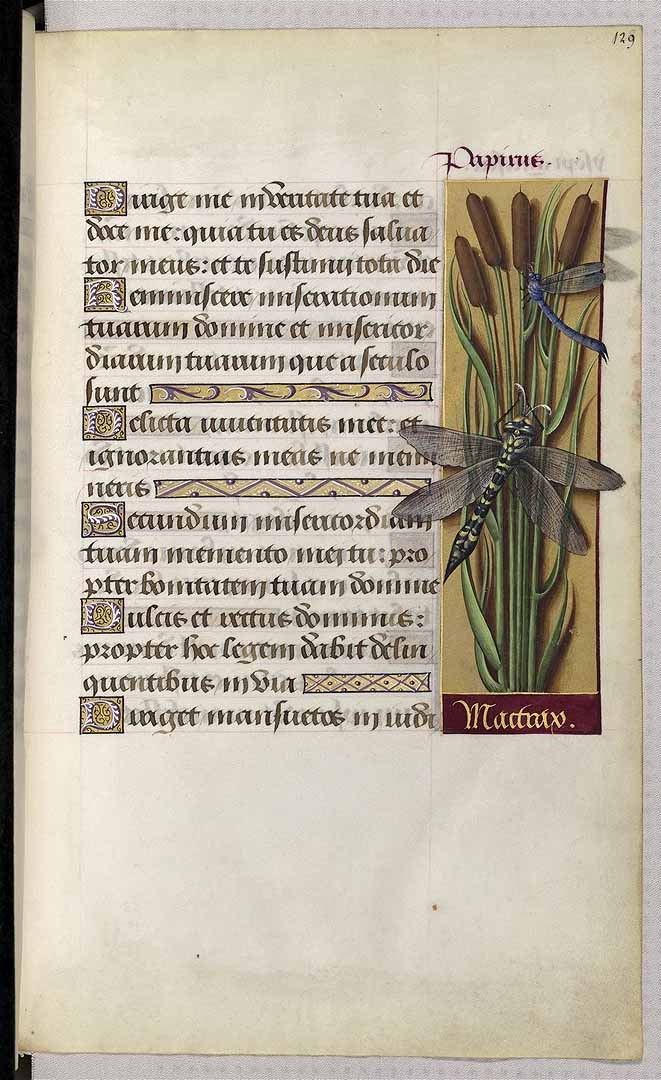 129
Papirus.
Dirige me in veritate tua et
doce me: quia tu es deus salua
tor meus: et te sustinui tota die
Reminiscere miserationum
tuarum domine et misericor
diarum tuarum que a seculo
sunt
Delicta iuuentutis mee: et
ignorantias meas ne memi
neris
Secundum misericordiam
tuam memento mei tu: pro
pter bonitatem tuam domine
Dulcis et rectus dominus:
propter hoc legem dabit delin
quentibus in via
Diriget mansuetos in iudi
Mactrax.